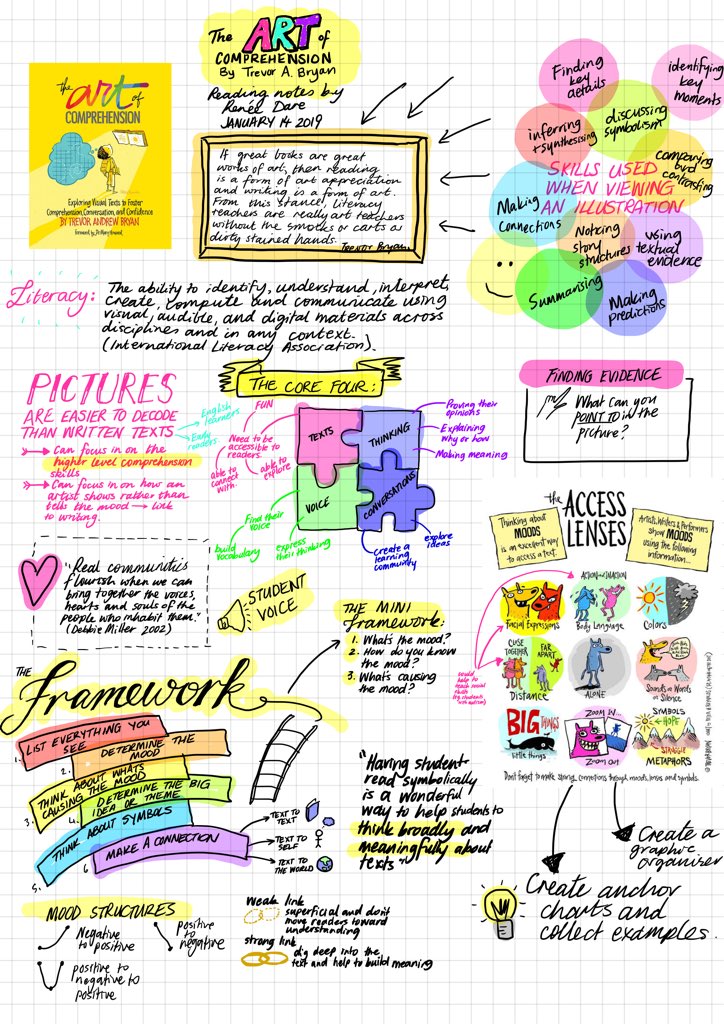 The ART of
COMPREHENSION
By Trevor A. Bryan
Reading notes by
Renée Dare
JANUARY 14 2019
the art of
COMPREHENSION
Exploring Visual Texts to Foster
Comprehension, Conversation, and Confidence
BY TREVOR ANDREW BRYAN
If great books are great
works of art, then reading
is a form of art appreciation
and writing is a form of art.
From this stance, literacy
teachers are really art teachers
without the smocks or carts or
dirty stained hands.
Trevor Bryan.
Finding
key
details
identifying
key
moments
inferring
+ synthesising
discussing
symbolism
comparing
and
contrasting
SKILLS USED
WHEN VIEWING
AN ILLUSTRATION
Making
connections
Noticing
story
structures
using
textual
evidence
Summarising
Making
predictions
Literacy:
The ability to identify, understand, interpret,
create, compute and communicate using
visual, audible, and digital materials across
disciplines and in any context.
(International Literacy Association).
PICTURES
ARE EASIER TO DECODE
THAN WRITTEN TEXTS
English
learners
Early
readers
Can focus in on the
higher level comprehension
skills
Can focus in on how an
artist shows rather than
tells the mood → link
to writing.
THE CORE FOUR:
FUN
Need to be
accessible to
readers.
able to
connect
with.
able to
explore
TEXTS
THINKING
VOICE
CONVERSATIONS
Proving their
opinions
Explaining
why or how
Making meaning
Find their
voice
build
vocabulary
express
their thinking
Create a
learning
community
explore
ideas
FINDING EVIDENCE
What can you
POINT TO in the
picture?
"Real communities
flourish when we can
bring together the voices,
hearts and souls of the
people who inhabit them."
(Debbie Miller 2002)
STUDENT
VOICE
THE MINI
framework:
1. What's the mood?
2. How do you know
the mood?
3. What's causing
the mood?
the ACCESS
LENSES
Thinking about
MOODS
is an excellent way
to access a text.
Artists, Writers & Performers
show MOODS
using the following
information...
Facial Expressions
ACTION or INACTION
Body Language
Colors
CLOSE
TOGETHER
FAR
APART
Distance
ALONE
Sounds or Words
or Silence
BIG THINGS
little things
ZOOM IN...
Zoom out
SYMBOLS
HOPE
STRUGGLE
METAPHORS
could
help to
teach social
skills
(eg students
with autism)
Don't forget to make strong connections through moods, lenses and symbols.
THE
Framework
1. LIST EVERYTHING YOU
SEE
2. DETERMINE THE
MOOD
3. THINK ABOUT WHATS
CAUSING THE MOOD
4. DETERMINE THE BIG
IDEA OR THEME
5. THINK ABOUT SYMBOLS
6. MAKE A CONNECTION
TEXT TO
TEXT
TEXT TO
SELF
TEXT TO
THE WORLD
"Having student
read symbolically
is a wonderful
way to help students to
think broadly and
meaningfully about
texts"
Create a
graphic
organiser
Create anchor
charts and
collect examples.
MOOD STRUCTURES
Negative
to positive
Positive
to
negative
positive to
negative to
positive
Weak link
superficial and don't
move readers toward
understanding
strong link
dig deep into the
text and help to build meaning